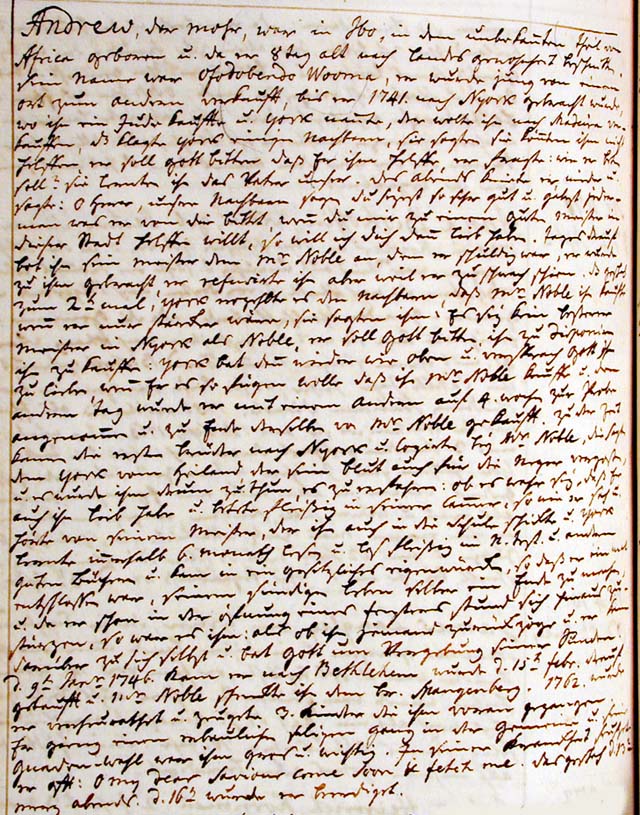 Andrew, der mohr, war in Ibo, in dem unbekanten theil von
Africa geboren u. da er 8 tag alt nach landes gewohnheit beschnitten.
Sein Name war Ofodobendo Wooma, er wurde jung von einem
ort zum andern verkaufft, bis er 1741. nach Nyork gebracht wurde,
wo ihn ein Jude kauffte u. York nante, der wolte ihn nach Madeira ver-
kauffen, das klagte York einigen Nachbarn, sie sagten sie könten ihm nicht
helffen er soll Gott bitten daß Er ihm helffe, er fragte: wie er beten
soll? sie lernten ihn das Vater unser. des abends kniete er nieder u.
sagte: O Herr, unsre Nachbarn sagen du seyst so sehr gut u. gebst jeder-
man was er von dir bittet, wenn du mir zu einem guten Meister in
dieser Stadt helffen willt, so will ich dich dann lieb haben. tages drauf
bot ihn sein meister dem Mr. Noble an, dem er schuldig war, er wurde
zu ihm gebracht er refusirte ihn aber weil er zu schwach schien. das geschah
zum 2ten mal, York erzehlte es den Nachbarn, daß Mr. Noble ihn kauffte
wenn er nur stärcker wäre, sie sagten ihm: Es sey kein besserer
Meister in Nyork als Noble, er soll Gott bitten, ihn zu disponiren
ihn zu kauffen: York bat dann wieder wie oben u. versprach Gott Ihn
zu lieben, wenn Er es so fügen wolle daß ihn Mr. Noble kauffte u. den
andern Tag wurde er mit einem andern auf 4. wochen zur Probe
angenommen u. zu Ende derselben von Mr. Noble gekaufft. zu der Zeit
kamen die ersten brüder nach Nyork u. logirten bey Mr. Noble, die sagten
dem York vom Heiland der sein blut auch für die Neger vergossen,
u. es wurde ihm drum zu thun, es zu erfahren: ob es wahr sey, daß Er
auch ihn lieb habe u. betete fleißig in seiner Cammer, so wie er sah u.
hörte von seinem Meister, der ihn auch in die Schule schickte u. York
lernte innerhalb 6. monath lesen u. las fleißig im N. Test. u. andern
guten büchern u. kam in ein gesetzliches eigenwürcken, so daß er einmal
entschlossen war, seinem sündigen leben selber ein Ende zu machen
u. da er schon in der öfnung eines fensters stund sich heraus zu
stürzen, so war es ihm: als ob ihn jemand zurück zöge u. er kam
darüber zu sich selbst u. bat Gott um Vergebung seiner Sünden.
d. 9ten 1746. kam er nach Bethlehem wurde d. 15ten febr. drauf
getaufft u. Mr. Noble schenkte ihn dem br. Spangenberg. 1762. wurde
er verheurathet u. zeugete 3. Kinder die ihm voran gegangen.
Er ging einen erbaulichen seligen gang in der Gemeine u. seine
gnadenwahl war ihm gros u. wichtig. In seiner Kranckheit seufzete
er offt: O my Dear Saviour come Soon & fetch me. das geschah d. 13ten
merz abends. d. 16ten wurde er beerdiget.